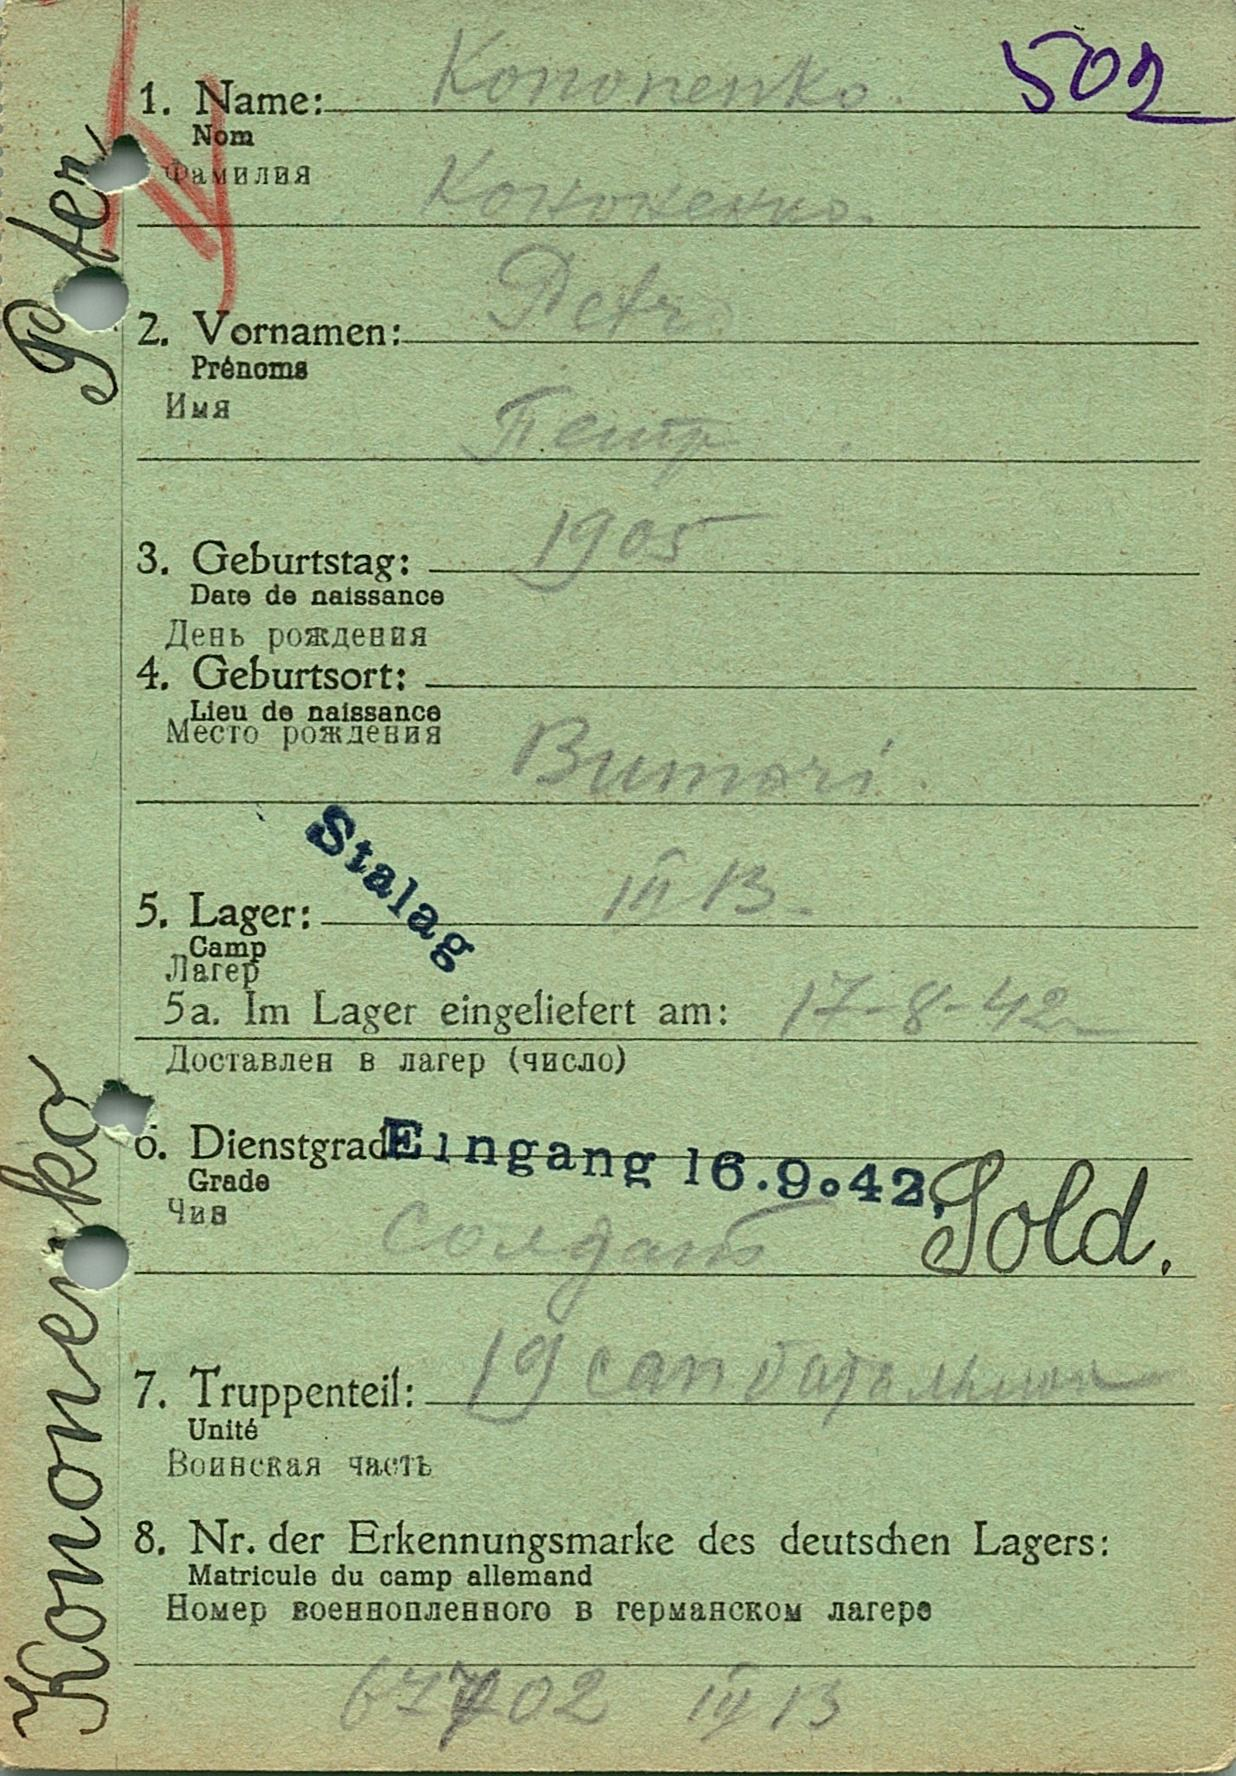 502
1. Name: Kononenko.
Nom
Фамилия Кононенко.
2. Vornamen: Petr
Prénoms
Имя Петр
3. Geburtstag: 1905
Date de naissance
День рождения
4. Geburtsort:
Lieu de naissance
Место рождения
Stalag
5. Lager: III B
Camp
Лагер
5a. Im Lager eingeliefert am: 17-8-42
Доставлен в лагер (число)
6. Dienstgrad Eingang 16.9.42,
Grade
Чин солдат Sold.
7. Truppenteil: 19 сап
Unité
Воинская часть
8. Nr. der Erkennungsmarke des deutschen Lagers:
Matricule du camp allemand
Номер военнопленного в германском лагере
02 III B
Kononenko Peter